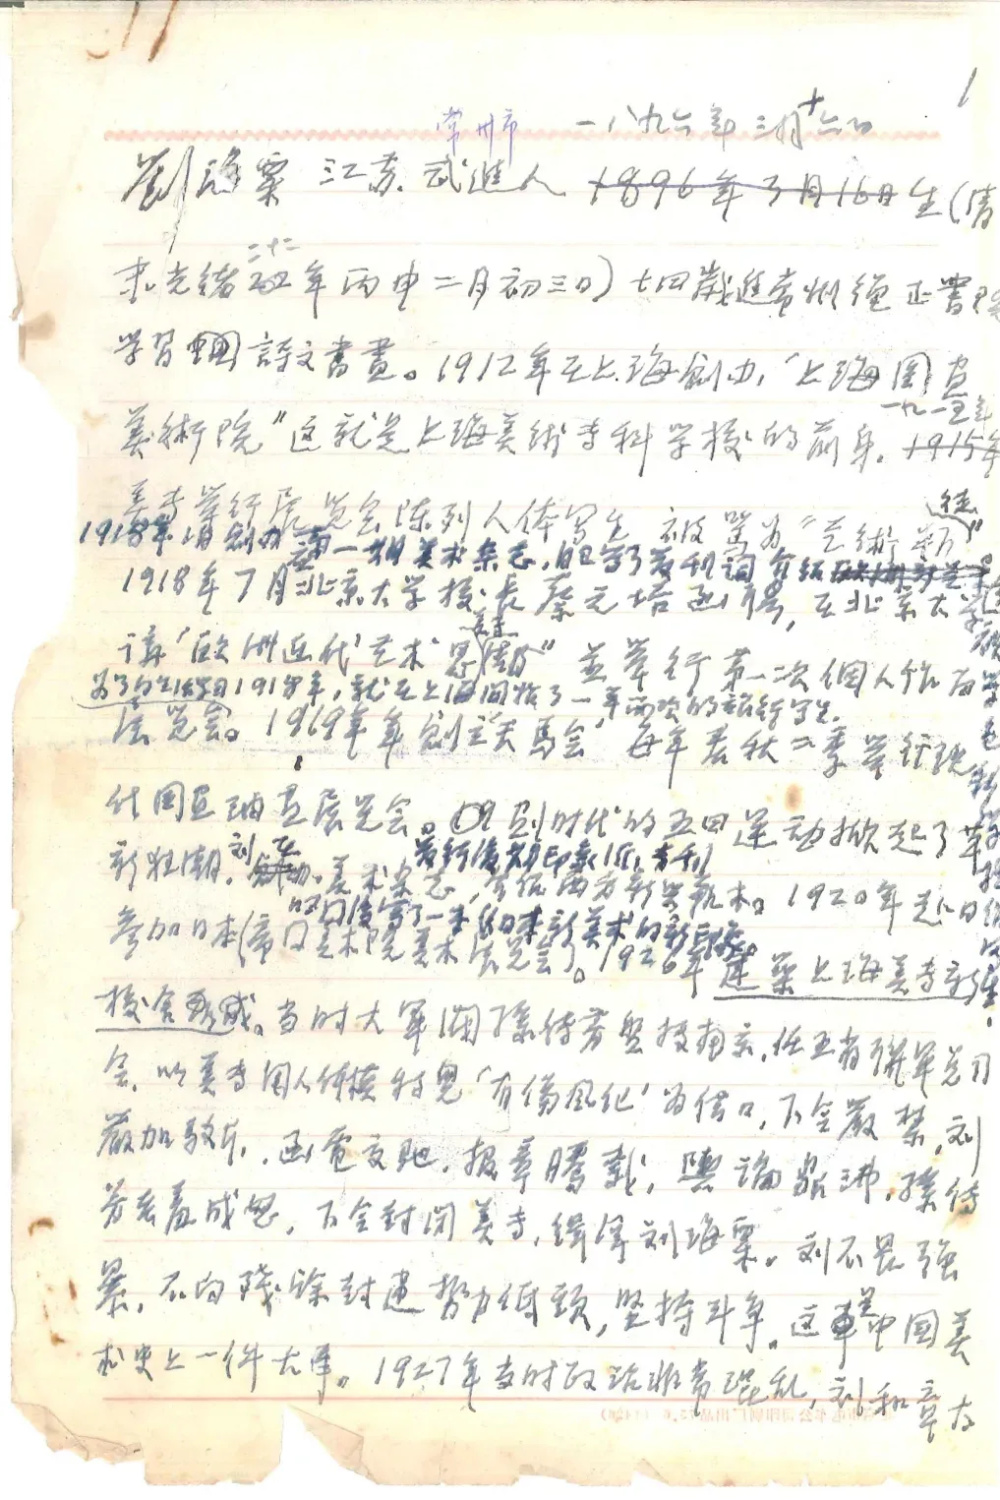 1
常州市 一八九六年三月十六日
劉海粟 江苏武進人 1896年3月16日生(清
末光绪二十二年丙申二月初三日)十四歲進常州绳正書院
学習中国詩文書畫。1912年在上海創办「上海图画
一九一五年
美術院"这就是上海美術专科学校的前身。1915年
美专举行展览会陈列人体写生 被罵为"艺術叛徒"
1918年 创办 第一期美术杂志,自己写了发刊词 介绍
1918年7月北京大学校长蔡元培函聘,在北京大学
讲「欧洲近代艺术思潮" 並举行第一次個人作品
1918年,就在上海开始了一年两次的旅行写生.
展览会。1919年创立天馬会 每年春秋二季举行现
代国画油画展览会。划时代的五四运动掀起了革
新狂潮,刘在 美术杂志,介绍西方新兴艺术。1920年赴日
回国后写了一本《日本新美术的新印象》
参加日本帝国美术院美术展览会。1926年建築上海美专新
校舍落成。当时大軍阀孫传芳盤據南京,任五省聯军总司
令,以美专用人体模特兒「有傷風化」为借口,下令嚴禁,刘
嚴加駁斥,函電交驰,报章騰載,輿論鼎沸,孫传
芳老羞成怒,下令封闭美专,缉拿刘海粟。刘不畏強
暴,不向残餘封建勢力低頭,坚持斗争。这是中国美
术史上一件大事。1927年当时政治非常混乱,刘和章太